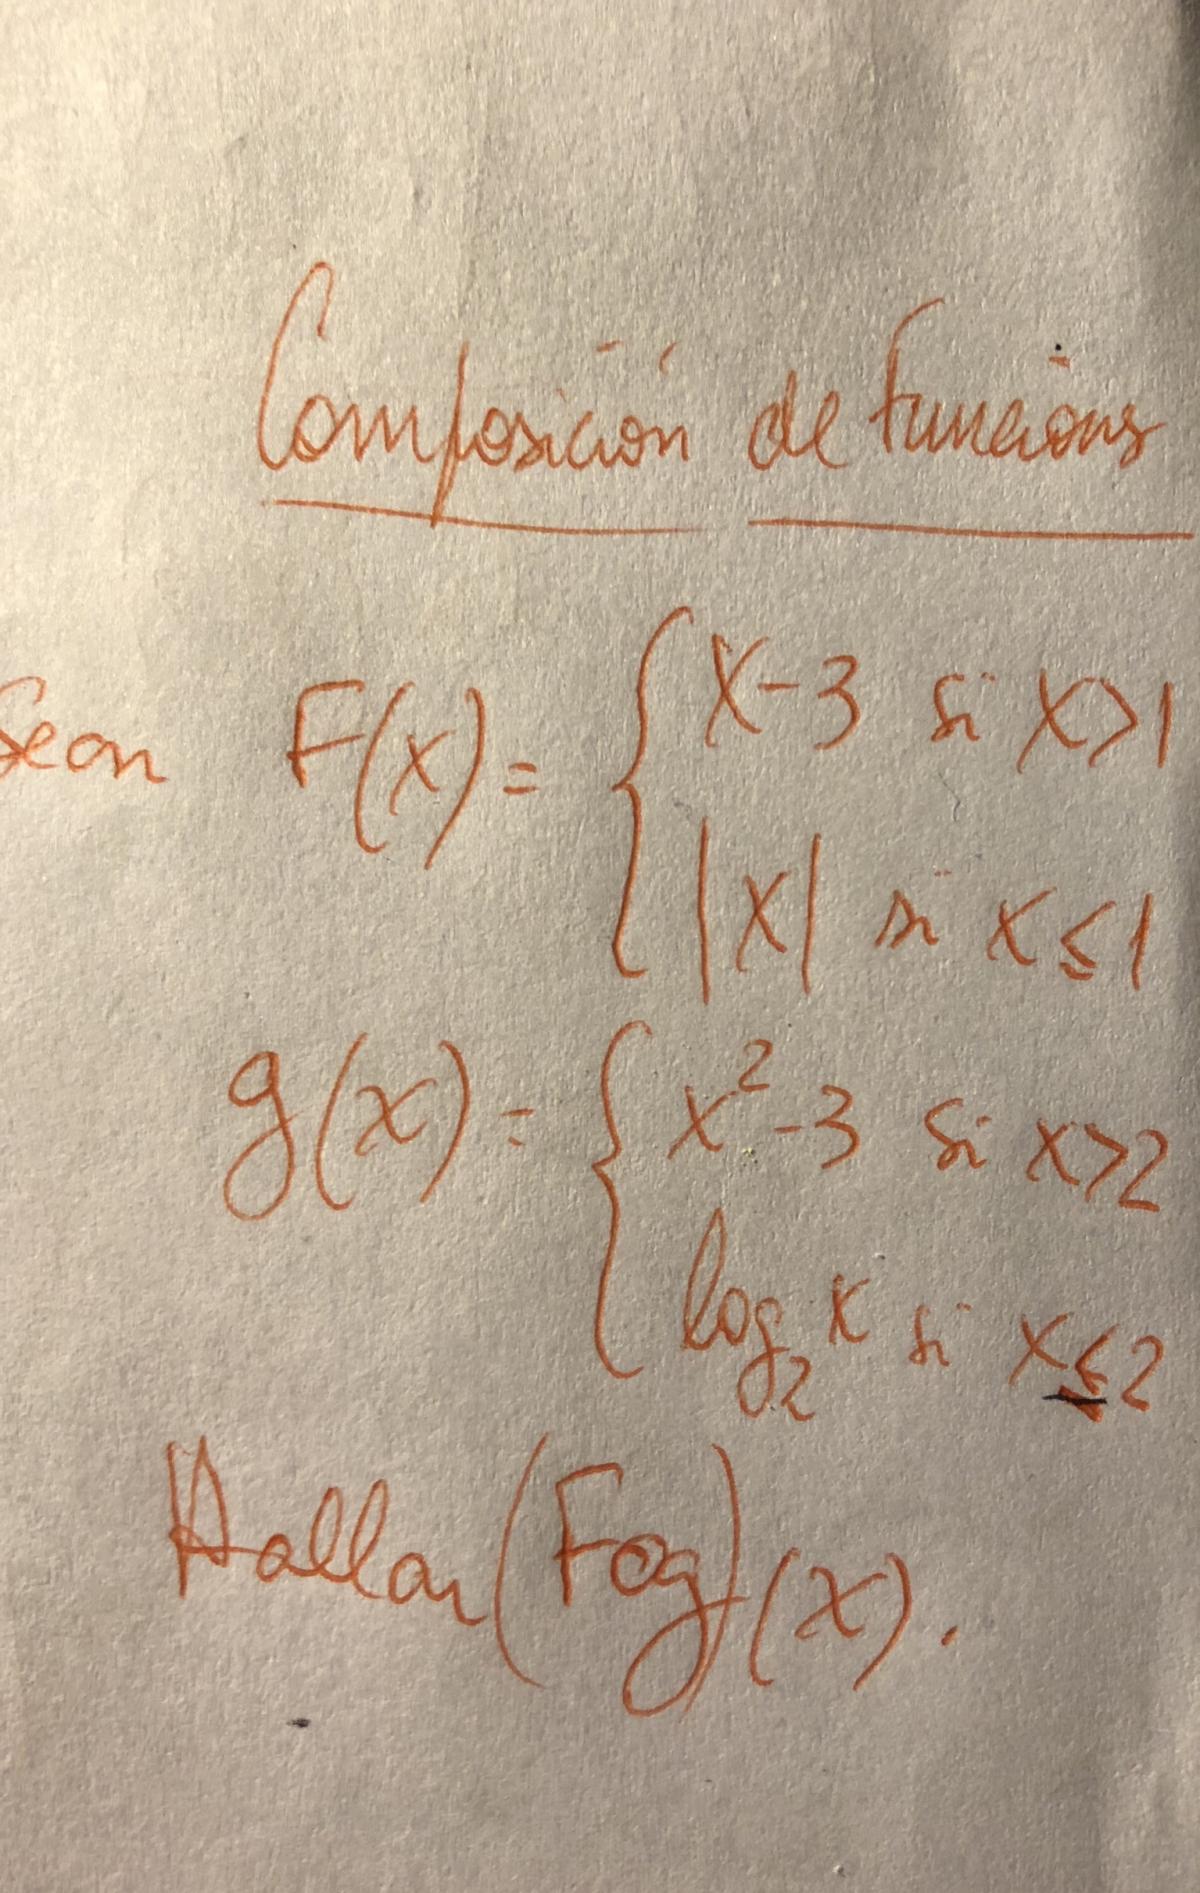 Composición de Funcions
Sean F(x) = { x-3 si x>1
|x| si x≤1
g(x) = { x²-3 si x>2
log₂x si x≤2
Hallar (Fog)(x).